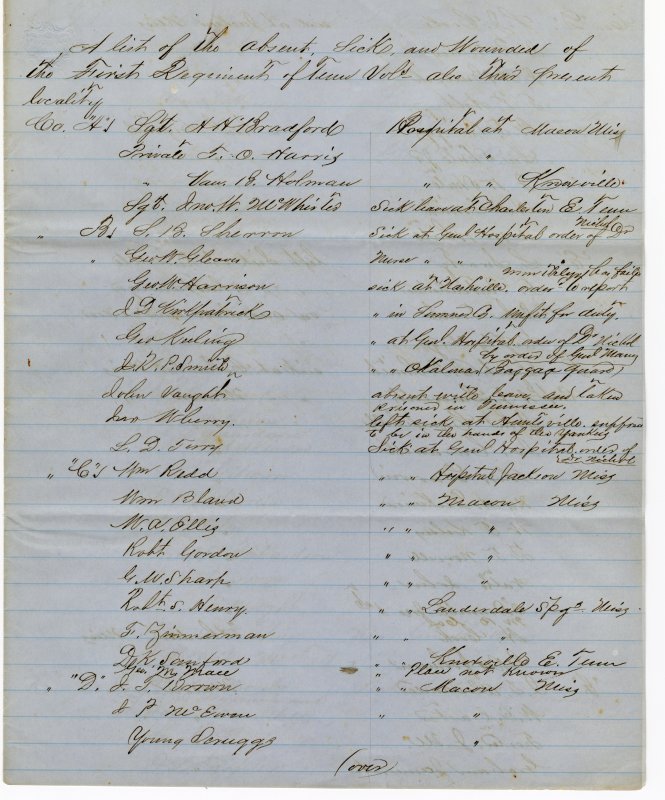 A list of the absent, Sick, and Wounded of
the First Regiment of Tenn Vols also their present
locality
Co. "A"s Sgt. A H Bradford Hospital at Macon Miss
Private T. O. Harris " "
" 18. Holman " " Knoxville.
Sgt. Jno. W. McWhirter Sick leave at Charleston E. Tenn
" Bs S. B. Sherron Sick at Genl Hospital order of Dr Nichol
" Geo W. Gleaves Nurse " "
Geo W Harrison sick at Nashville. order to report
J D Kirkpatrick " in Sumner Co. Unfit for duty.
Geo Keeling " at Genl. Hospital order of Dr Nichol
J. K. P. Smith " " Okalona Baggag Guard, by order of Genl Maury
John Vaught absent witht leave, and taken
prisoner in Tennessee.
Jno Wherry. left sick at Huntsville. suppose
to be in the hands of the Yankees
L. D. Terry Sick at Genl Hospital order of Dr Nichol
" "C"s Wm Redd " " Hospital Jackson Miss
Wm Bland " " Macon Miss
M. A. Ellis " " "
Robt Gordon " " "
G. W. Sharp " " "
Robt. S. Henry. " " Lauderdale Spgs. Miss.
F. Zimmerman " " "
D. K. Sanford " Knoxville E. Tenn
Geo. Mc Grace " Place not known
" "D." J. T. Brown " Macon Miss
J. P. McEwen " "
Young Scruggs "
(over